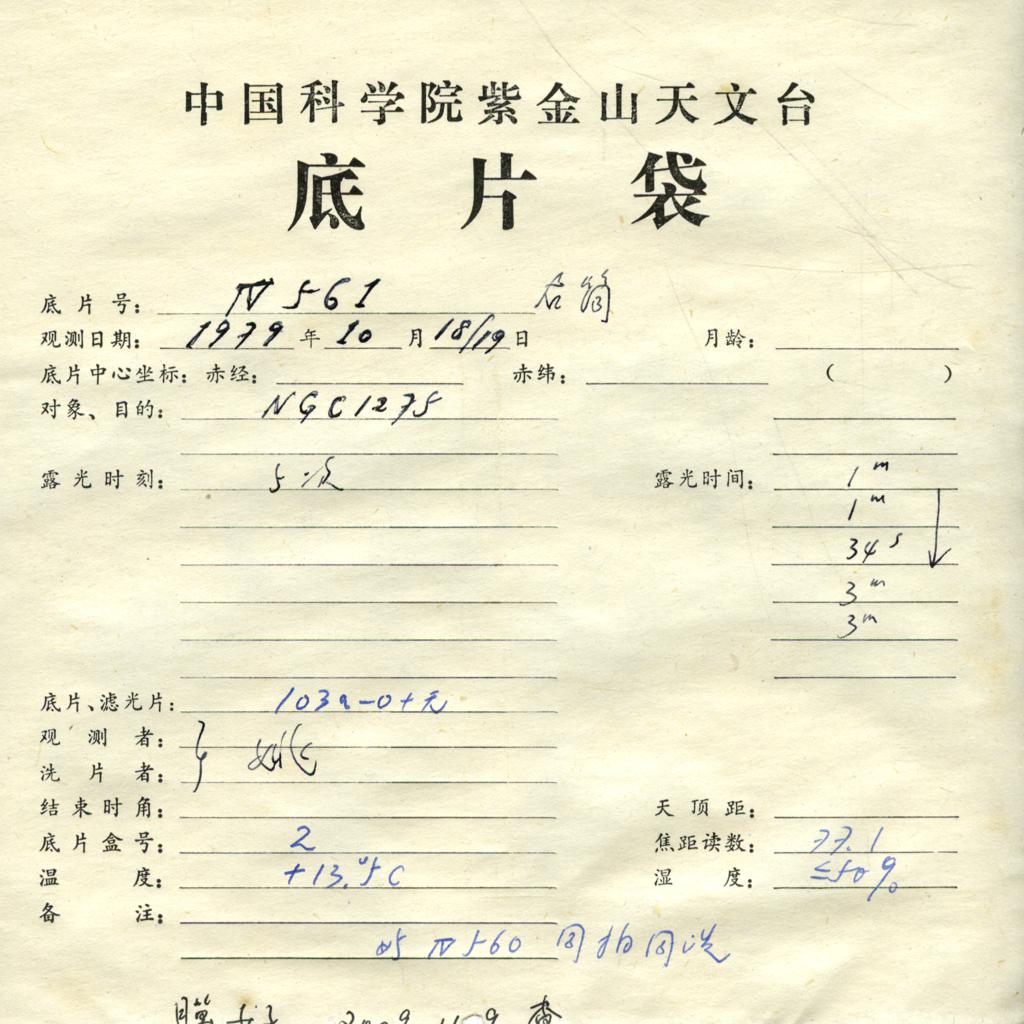 中国科学院紫金山天文台
底片袋
底片号: Ⅳ561 右筒
观测日期: 1979年10月18/19日 月龄:
底片中心坐标: 赤经: 赤纬: ( )
对象、目的: NGC1275
露光时刻: 5次 露光时间: 1m
1m
34s
3m
3m
底片、滤光片: 103a-O+无
观测者: 姚
洗片者:
结束时角: 天顶距:
底片盒号: 2 焦距读数: 77.1
温度: +13.°5C 湿度: ≤50%
备注:
与Ⅳ560同拍同洗
2009.11.9 查